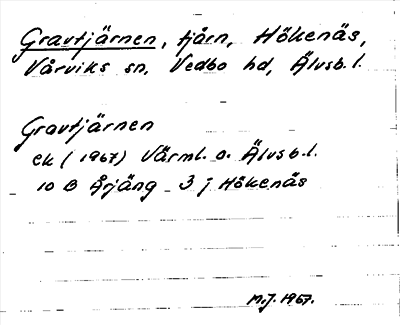 Gravtjärnen, tjårn, Hökenäs,
Vårviks sn, Vedbo hd, Älvsb. l.
Gravtjärnen
ek (1967) Värml. o. Älvsb. l.
10 B Årjäng 3 j Hökenäs
M.J. 1967.